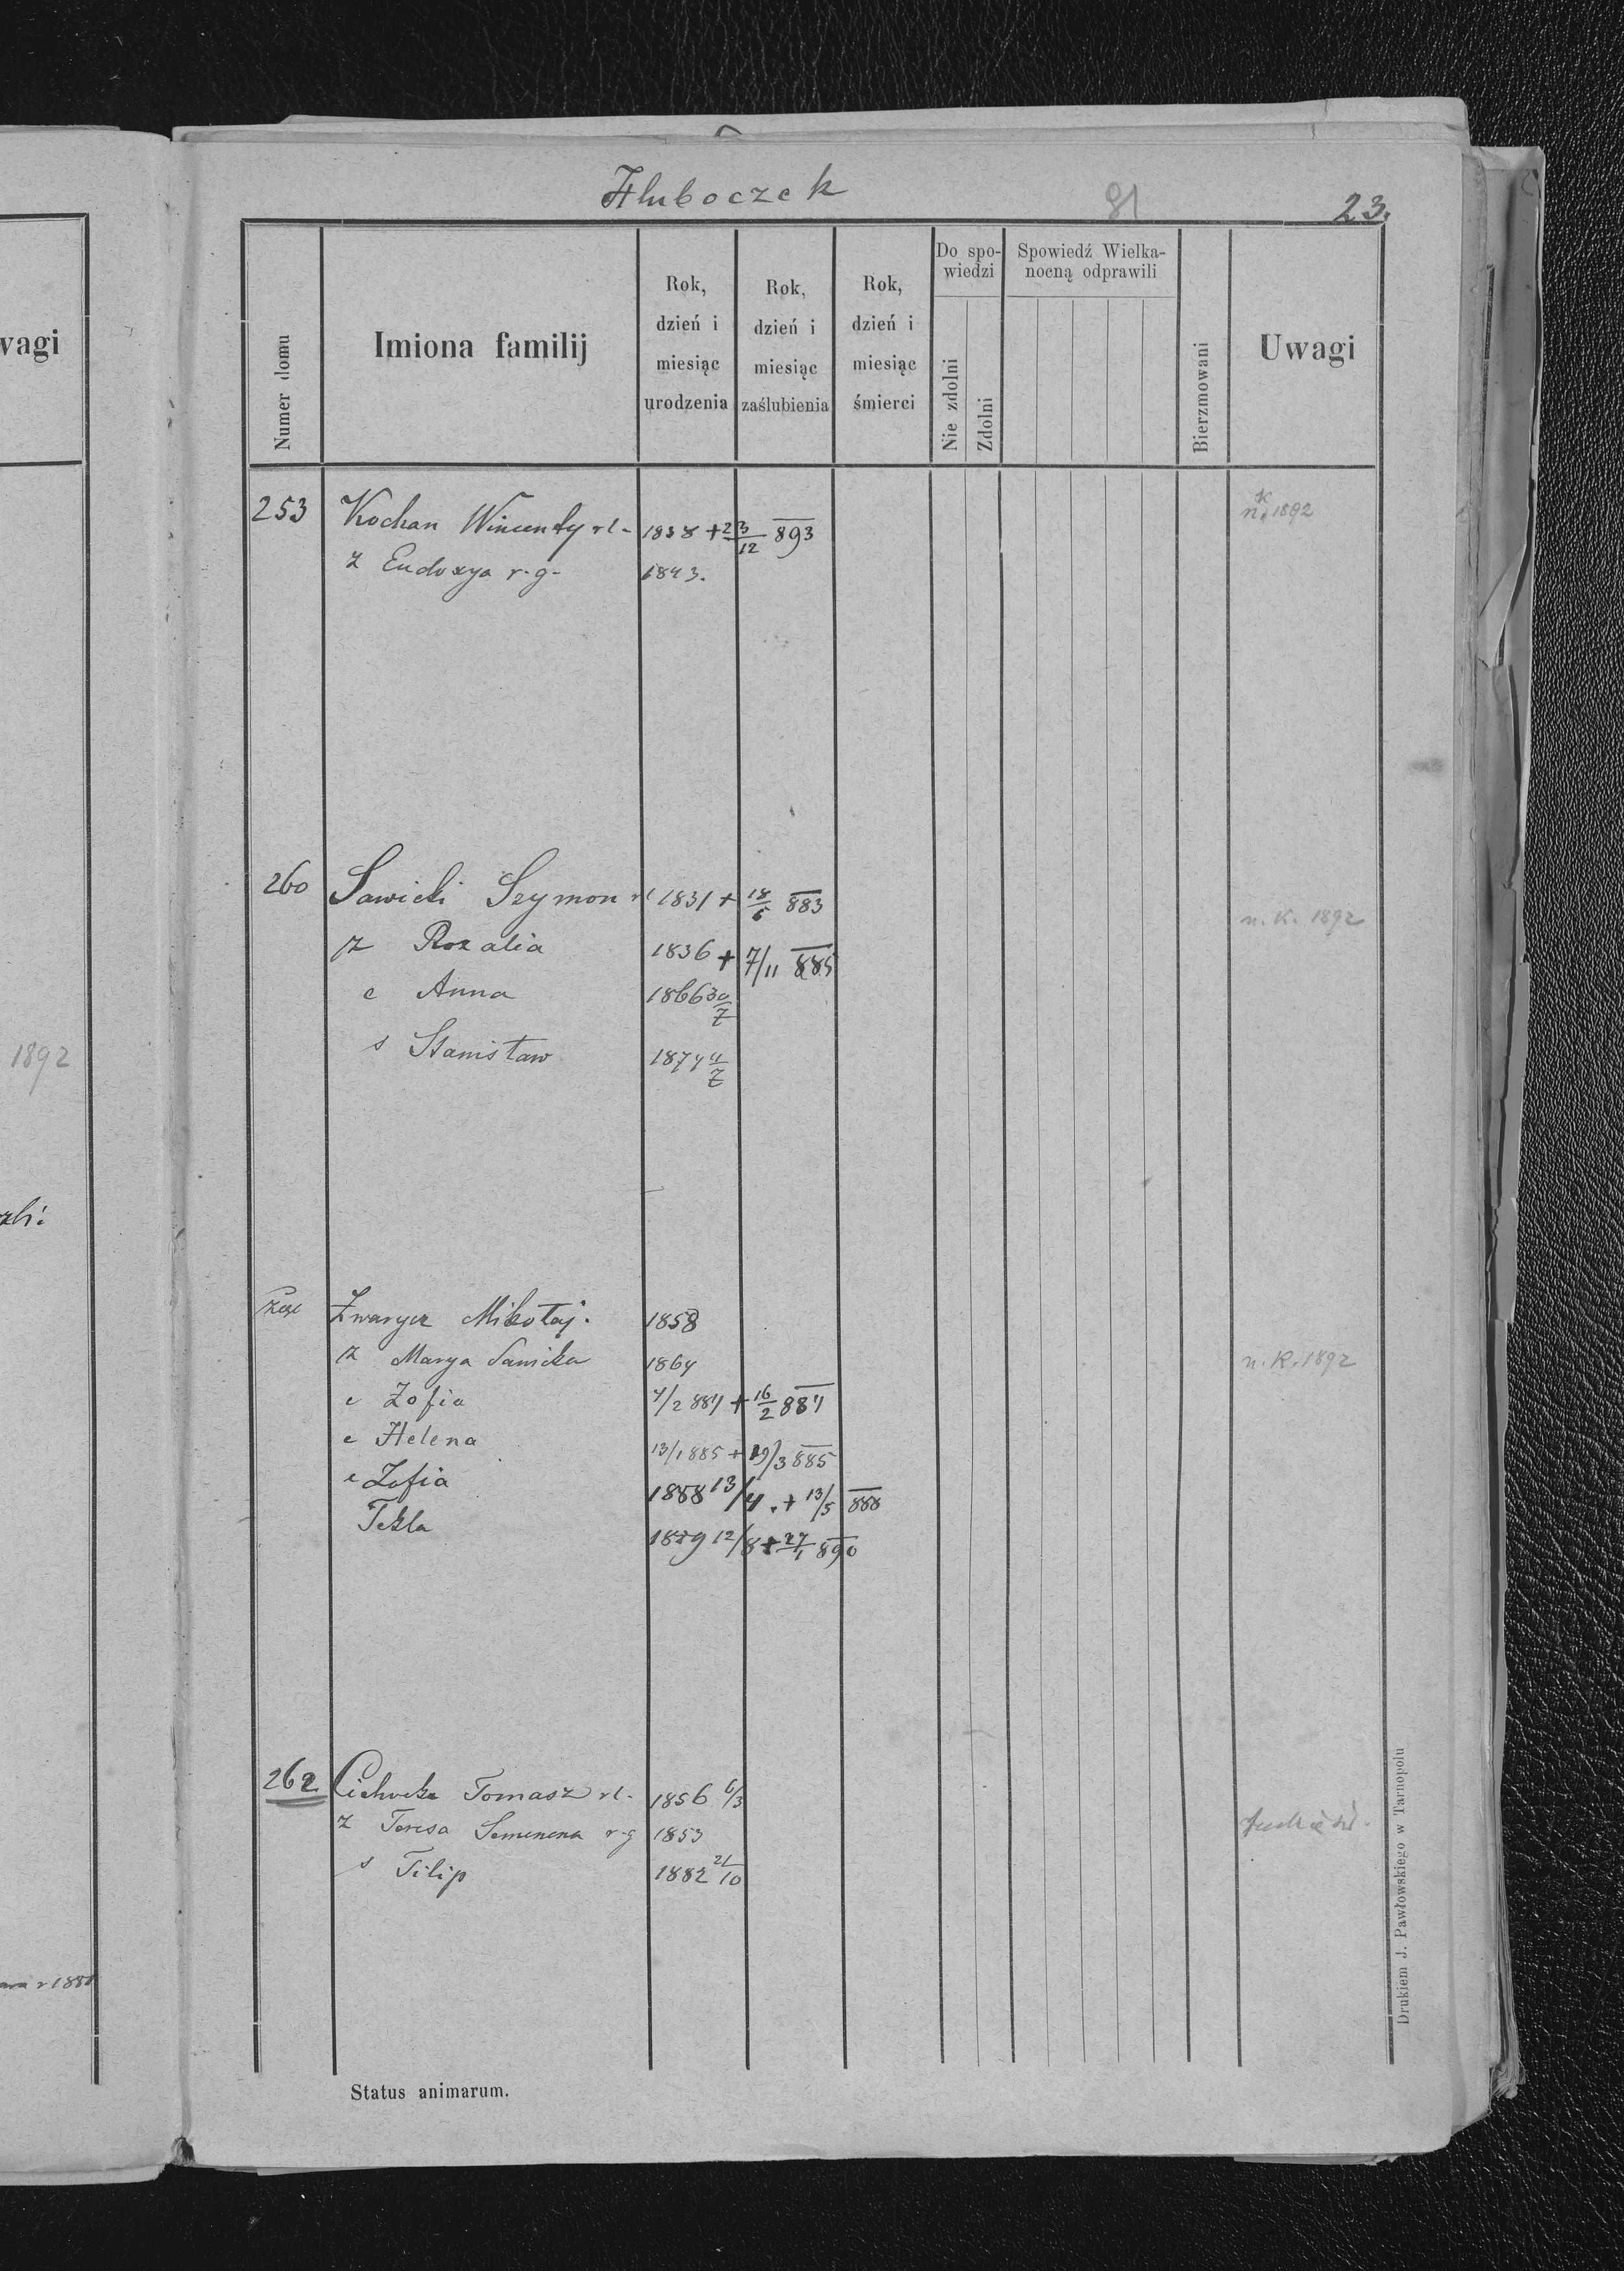 Hłuboczek
91
23.
Numer domu
Imiona familij
Rok, dzień i miesiąc urodzenia
Rok, dzień i miesiąc zaślubienia
Rok, dzień i miesiąc śmierci
Do spo-
wiedzi
Nie zdolni
Zdolni
Spowiedź Wielka-
nocną odprawili
Bierzmowani
Uwagi
253 Kochan Wincenty rl- 1838 + 23/12 893 n. K 1892
ż Eudoxya r-g- 1843.
260 Sawicki Szymon rl 1831 + 18/5 883 n. K. 1892
ż Rozalia 1836 + 7/11 885
c Anna 1866 30/7
s Stanisław 1874 11/7
Zwarycz Mikołaj. 1858
ż Marya Sawicka 1864 n. K. 1892
c Zofia 4/2 884 + 16/2 884
c Helena 13/1 885 + 19/3 885
c Zofia 1888 13/4 . + 13/5 888
Tekla 1889 12/8 + 27/1 890
262 Tomasz rl- 1856 6/3
ż Teresa Semenena r-g 1853
s Filip 1882 21/10
Status animarum.
Drukiem J. Pawłowskiego w Tarnopolu
wagi
1892
r 1881